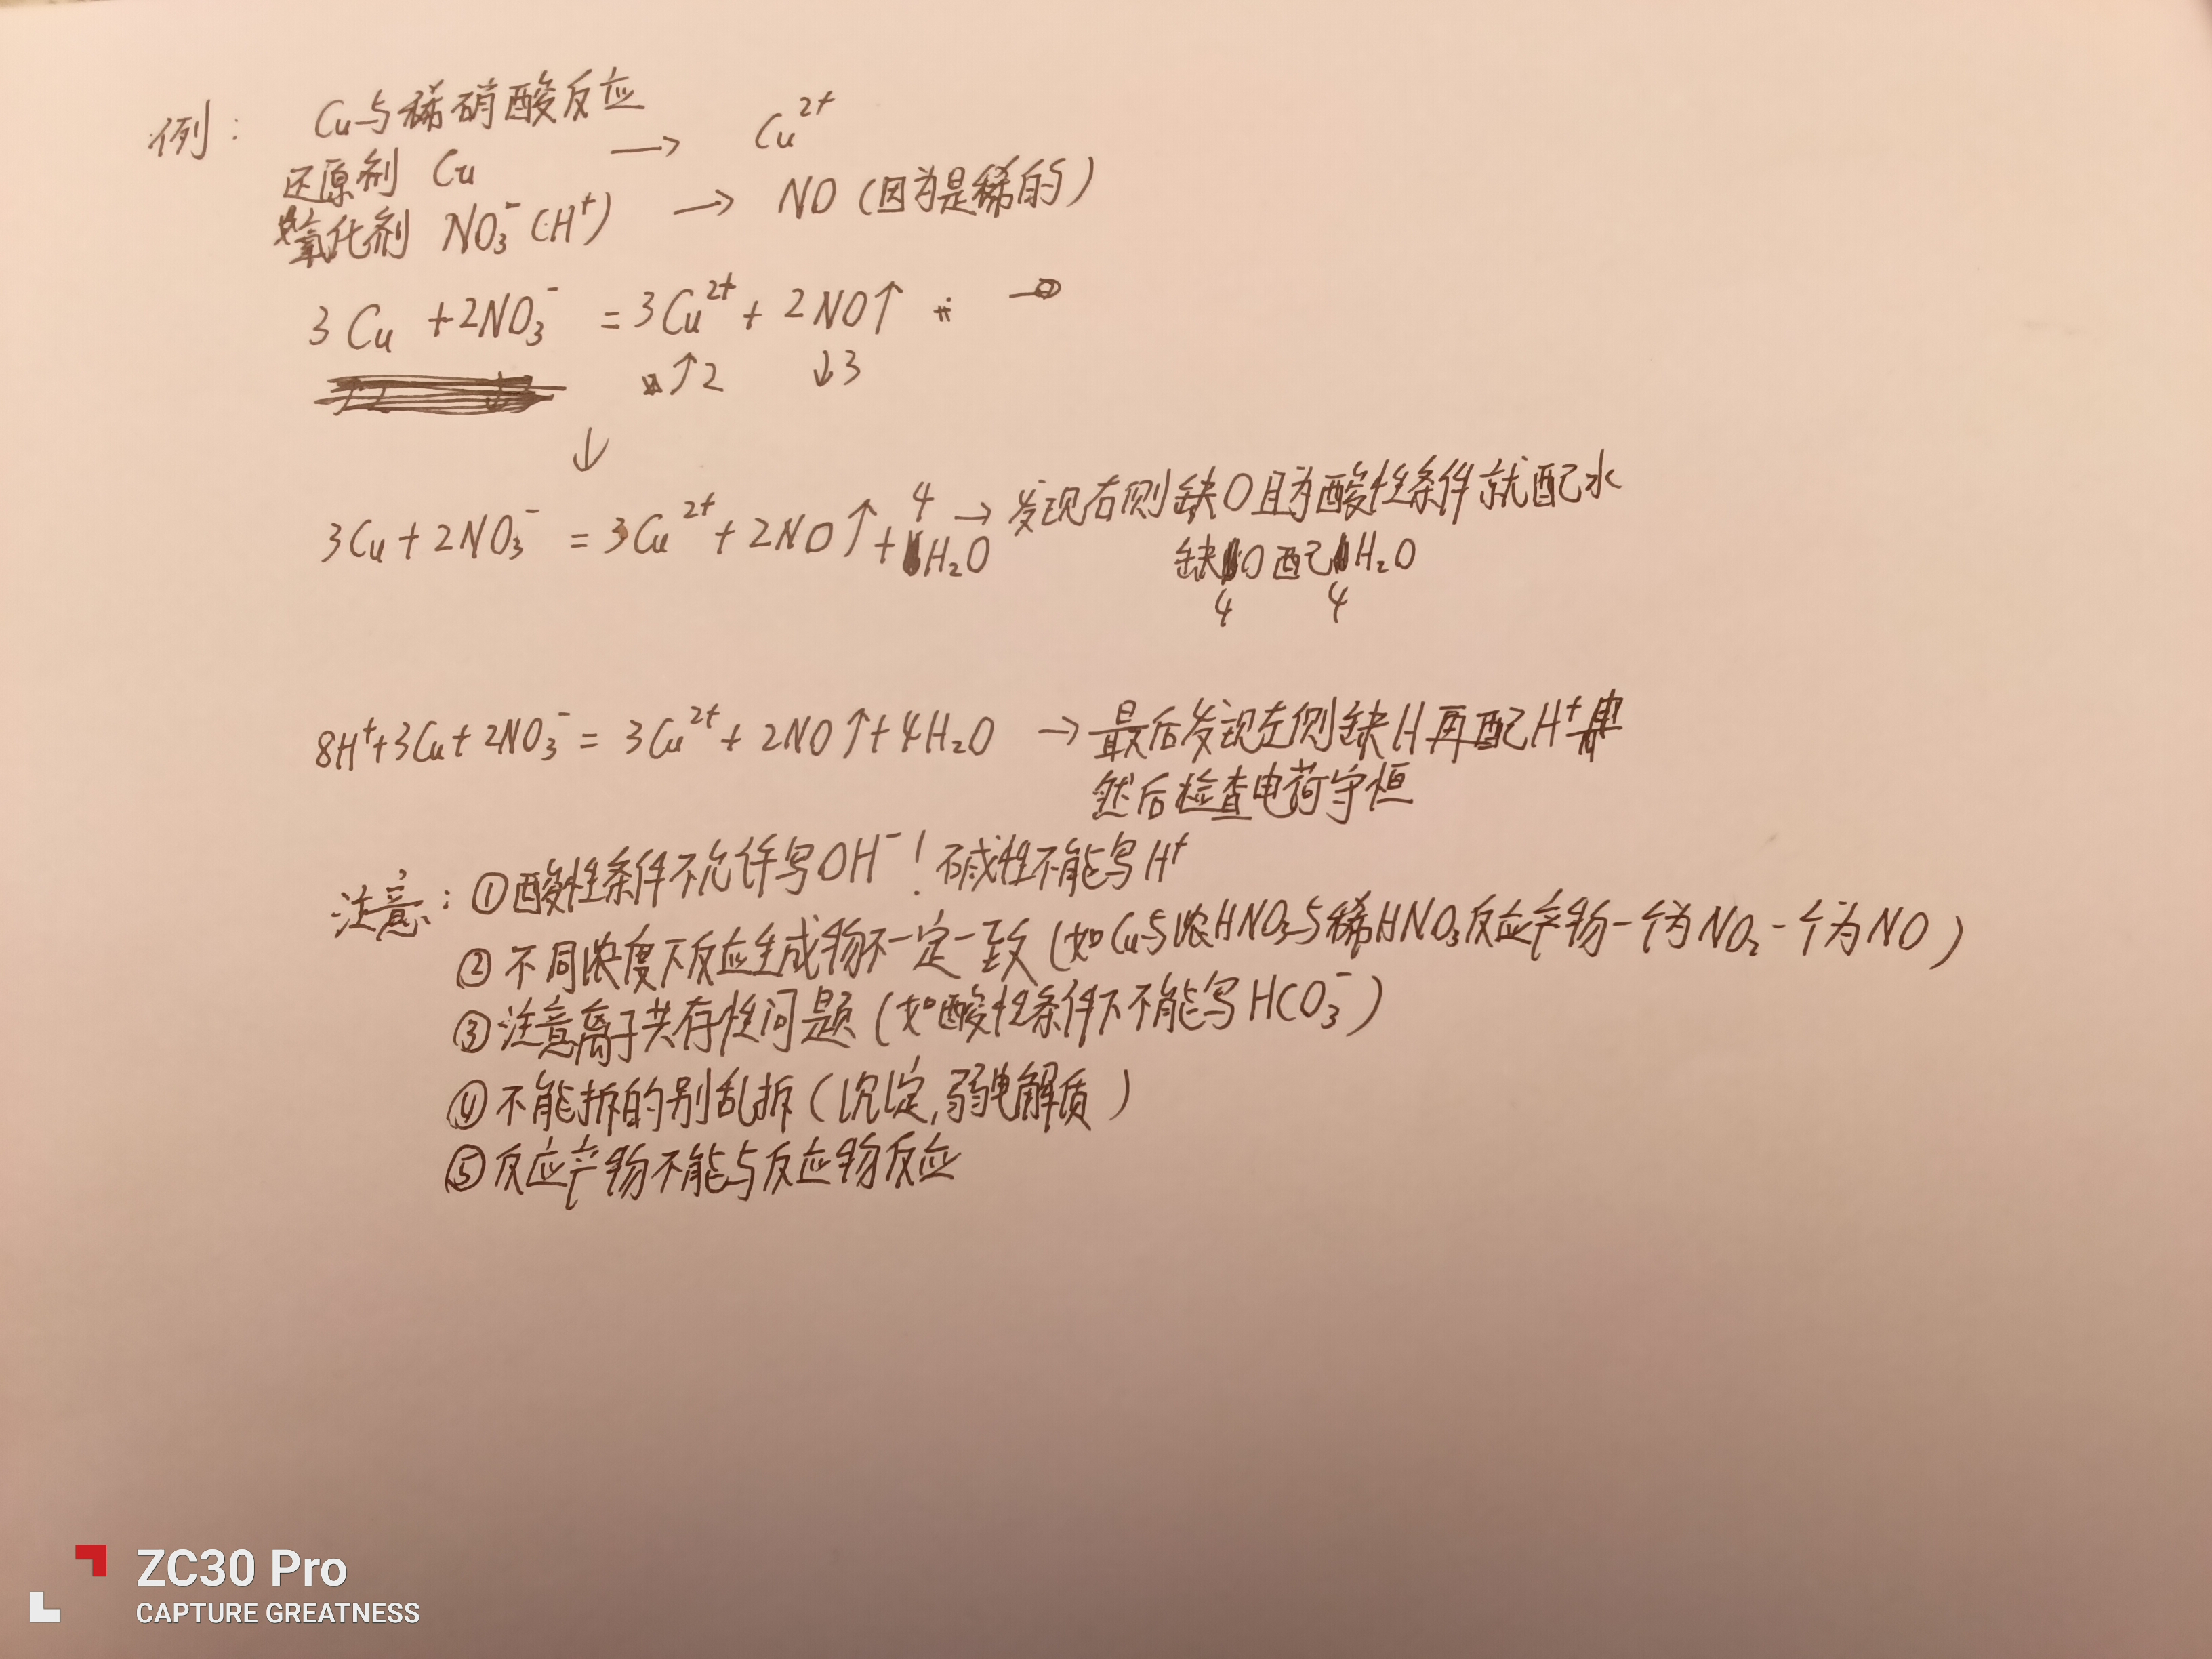 例： Cu与稀硝酸反应
还原剂 Cu → Cu²⁺
氧化剂 NO₃⁻(H⁺) → NO (因为是稀的)
3Cu + 2NO₃⁻ = 3Cu²⁺ + 2NO↑ +
↑2 ↓3
↓
3Cu + 2NO₃⁻ = 3Cu²⁺ + 2NO↑ + 4H₂O → 发现右侧缺O且为酸性条件就配水
缺4O配4H₂O
8H⁺+3Cu+2NO₃⁻ = 3Cu²⁺ + 2NO↑+4H₂O → 最后发现左侧缺H再配H⁺
然后检查电荷守恒
注意：①酸性条件不允许写OH⁻！碱性不能写H⁺
②不同浓度下反应生成物不一定一致(如Cu与浓HNO₃与稀HNO₃反应产物一个为NO₂一个为NO)
③注意离子共存性问题(如酸性条件下不能写HCO₃⁻)
④不能拆的别乱拆(沉淀,弱电解质)
⑤反应产物不能与反应物反应
ZC30 Pro
CAPTURE GREATNESS